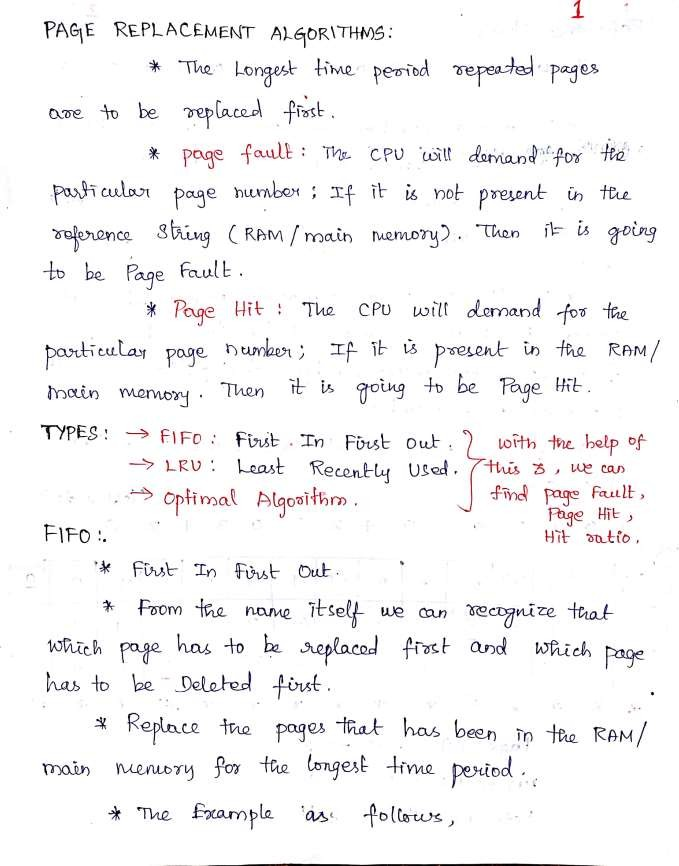 1
PAGE REPLACEMENT ALGORITHMS:
* The Longest time period repeated pages
are to be replaced first.
* page fault: The CPU will demand for the
particular page number; If it is not present in the
reference String (RAM/main memory). Then it is going
to be Page Fault.
* Page Hit: The CPU will demand for the
particular page number; If it is present in the RAM/
main memory. Then it is going to be Page Hit.
TYPES: → FIFO: First In First Out. with the help of
→ LRU: Least Recently Used. this 3, we can
→ Optimal Algorithm. find page Fault,
Page Hit,
Hit ratio.
FIFO:
* First In First Out.
* From the name itself we can recognize that
which page has to be replaced first and which page
has to be Deleted first.
* Replace the pages that has been in the RAM/
main memory for the longest time period.
* The Example as follows,